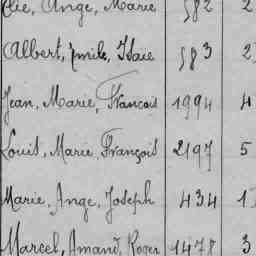 Elie, Ange, Marie 582 2
Albert, Emile, Isaie 583 2
Jean, Marie, François 1994 4
Louis, Marie, François 2197 5
Marie, Ange, Joseph 434 1
Marcel, Amand, Roger 1478 3